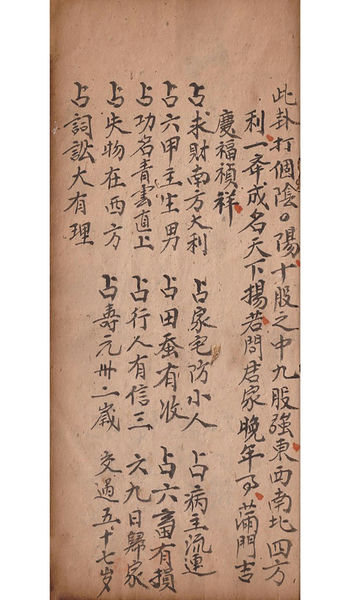 此卦打個陰。陽十股之中九股強東西南北四方
利一斉成名天下揚若問君家晚年事滿門吉
慶福禎祥
占求財南方大利 占家宅防小人 占病主流連
占六甲主生男 占田蚕有收 占六畜有損
占功名青雲直上 占行人有信三 六九日歸家
占失物在西方 占壽元卅二歲 交過五十七岁
占詞訟大有理